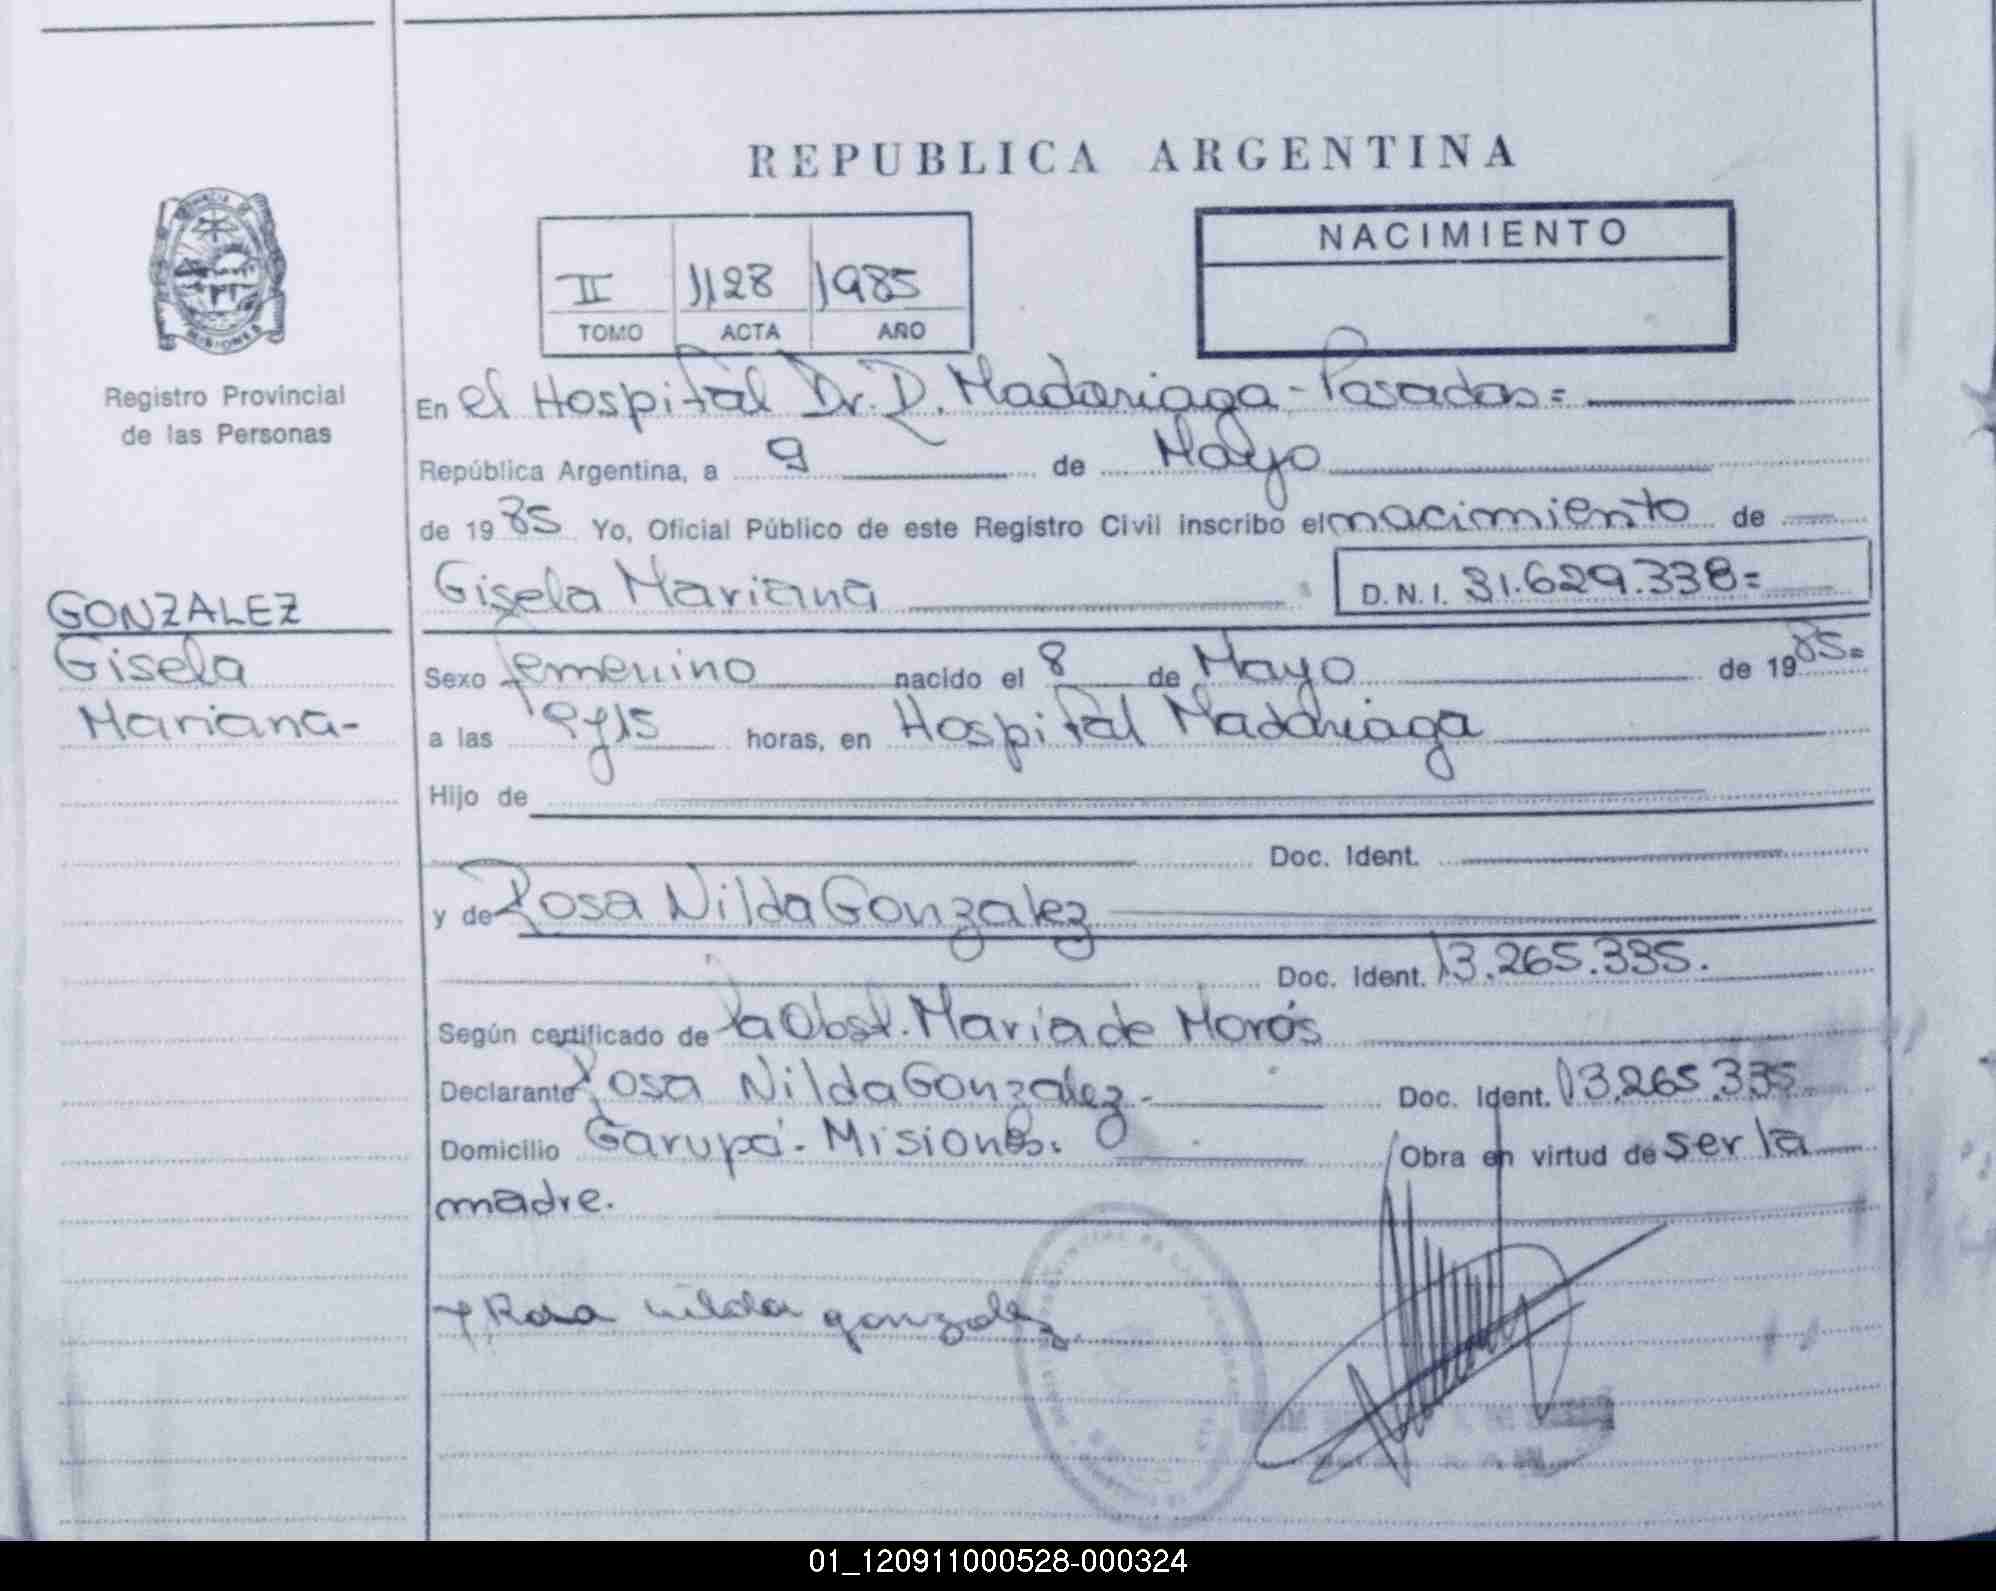 REPUBLICA ARGENTINA
NACIMIENTO
II 1128 1985
TOMO ACTA AÑO
MISIONES
Registro Provincial
de las Personas
En el Hospital Dr. R. Madariaga - Posadas =
República Argentina, a 9 de Mayo
de 1985 Yo, Oficial Público de este Registro Civil inscribo el nacimiento de
Gisela Mariana D.N.I. 31.629.338=
GONZALEZ
Gisela
Mariana-
Sexo femenino nacido el 8 de Mayo de 1985=
a las 9y15 horas, en Hospital Madariaga
Hijo de
Doc. Ident.
y de Rosa Nilda Gonzalez
Doc. Ident. 13.265.335.
Según certificado de la Obst. Maria de Morós
Declarante Rosa Nilda Gonzalez - Doc. Ident. 13.265.335
Domicilio Garupá - Misiones. Obra en virtud de ser la
madre.
+ Rosa nilda gonzalez
01_120911000528-000324